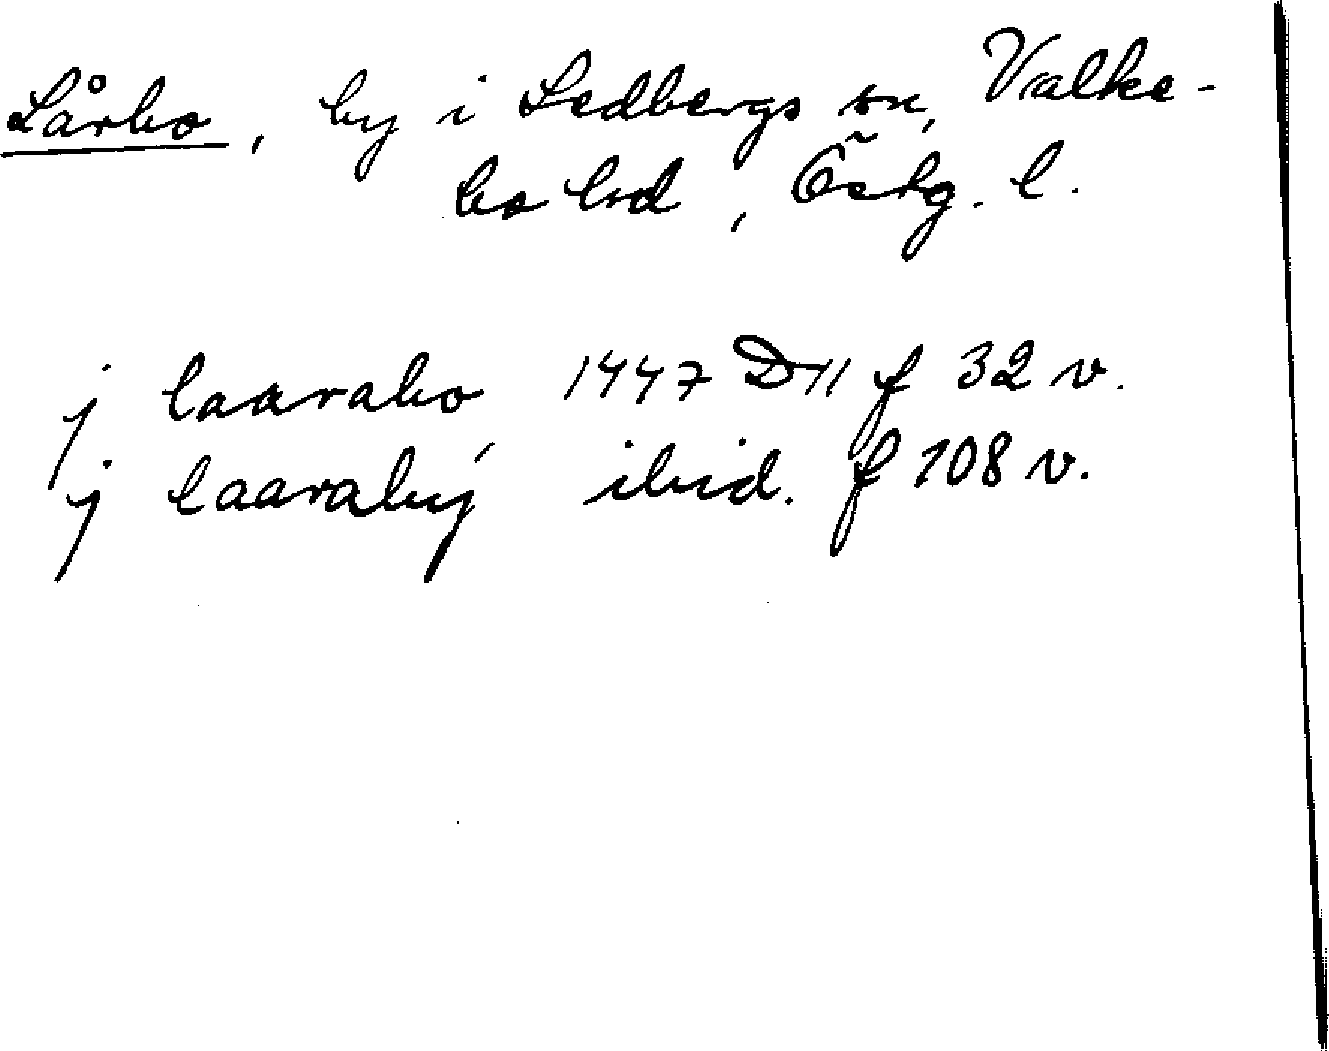 Lårbo, by i Ledbergs sn, Valke-
bo hd, Östg. l.
j laarabo 1447 D 11 f 32 v.
j laaraby ibid. f 108 v.